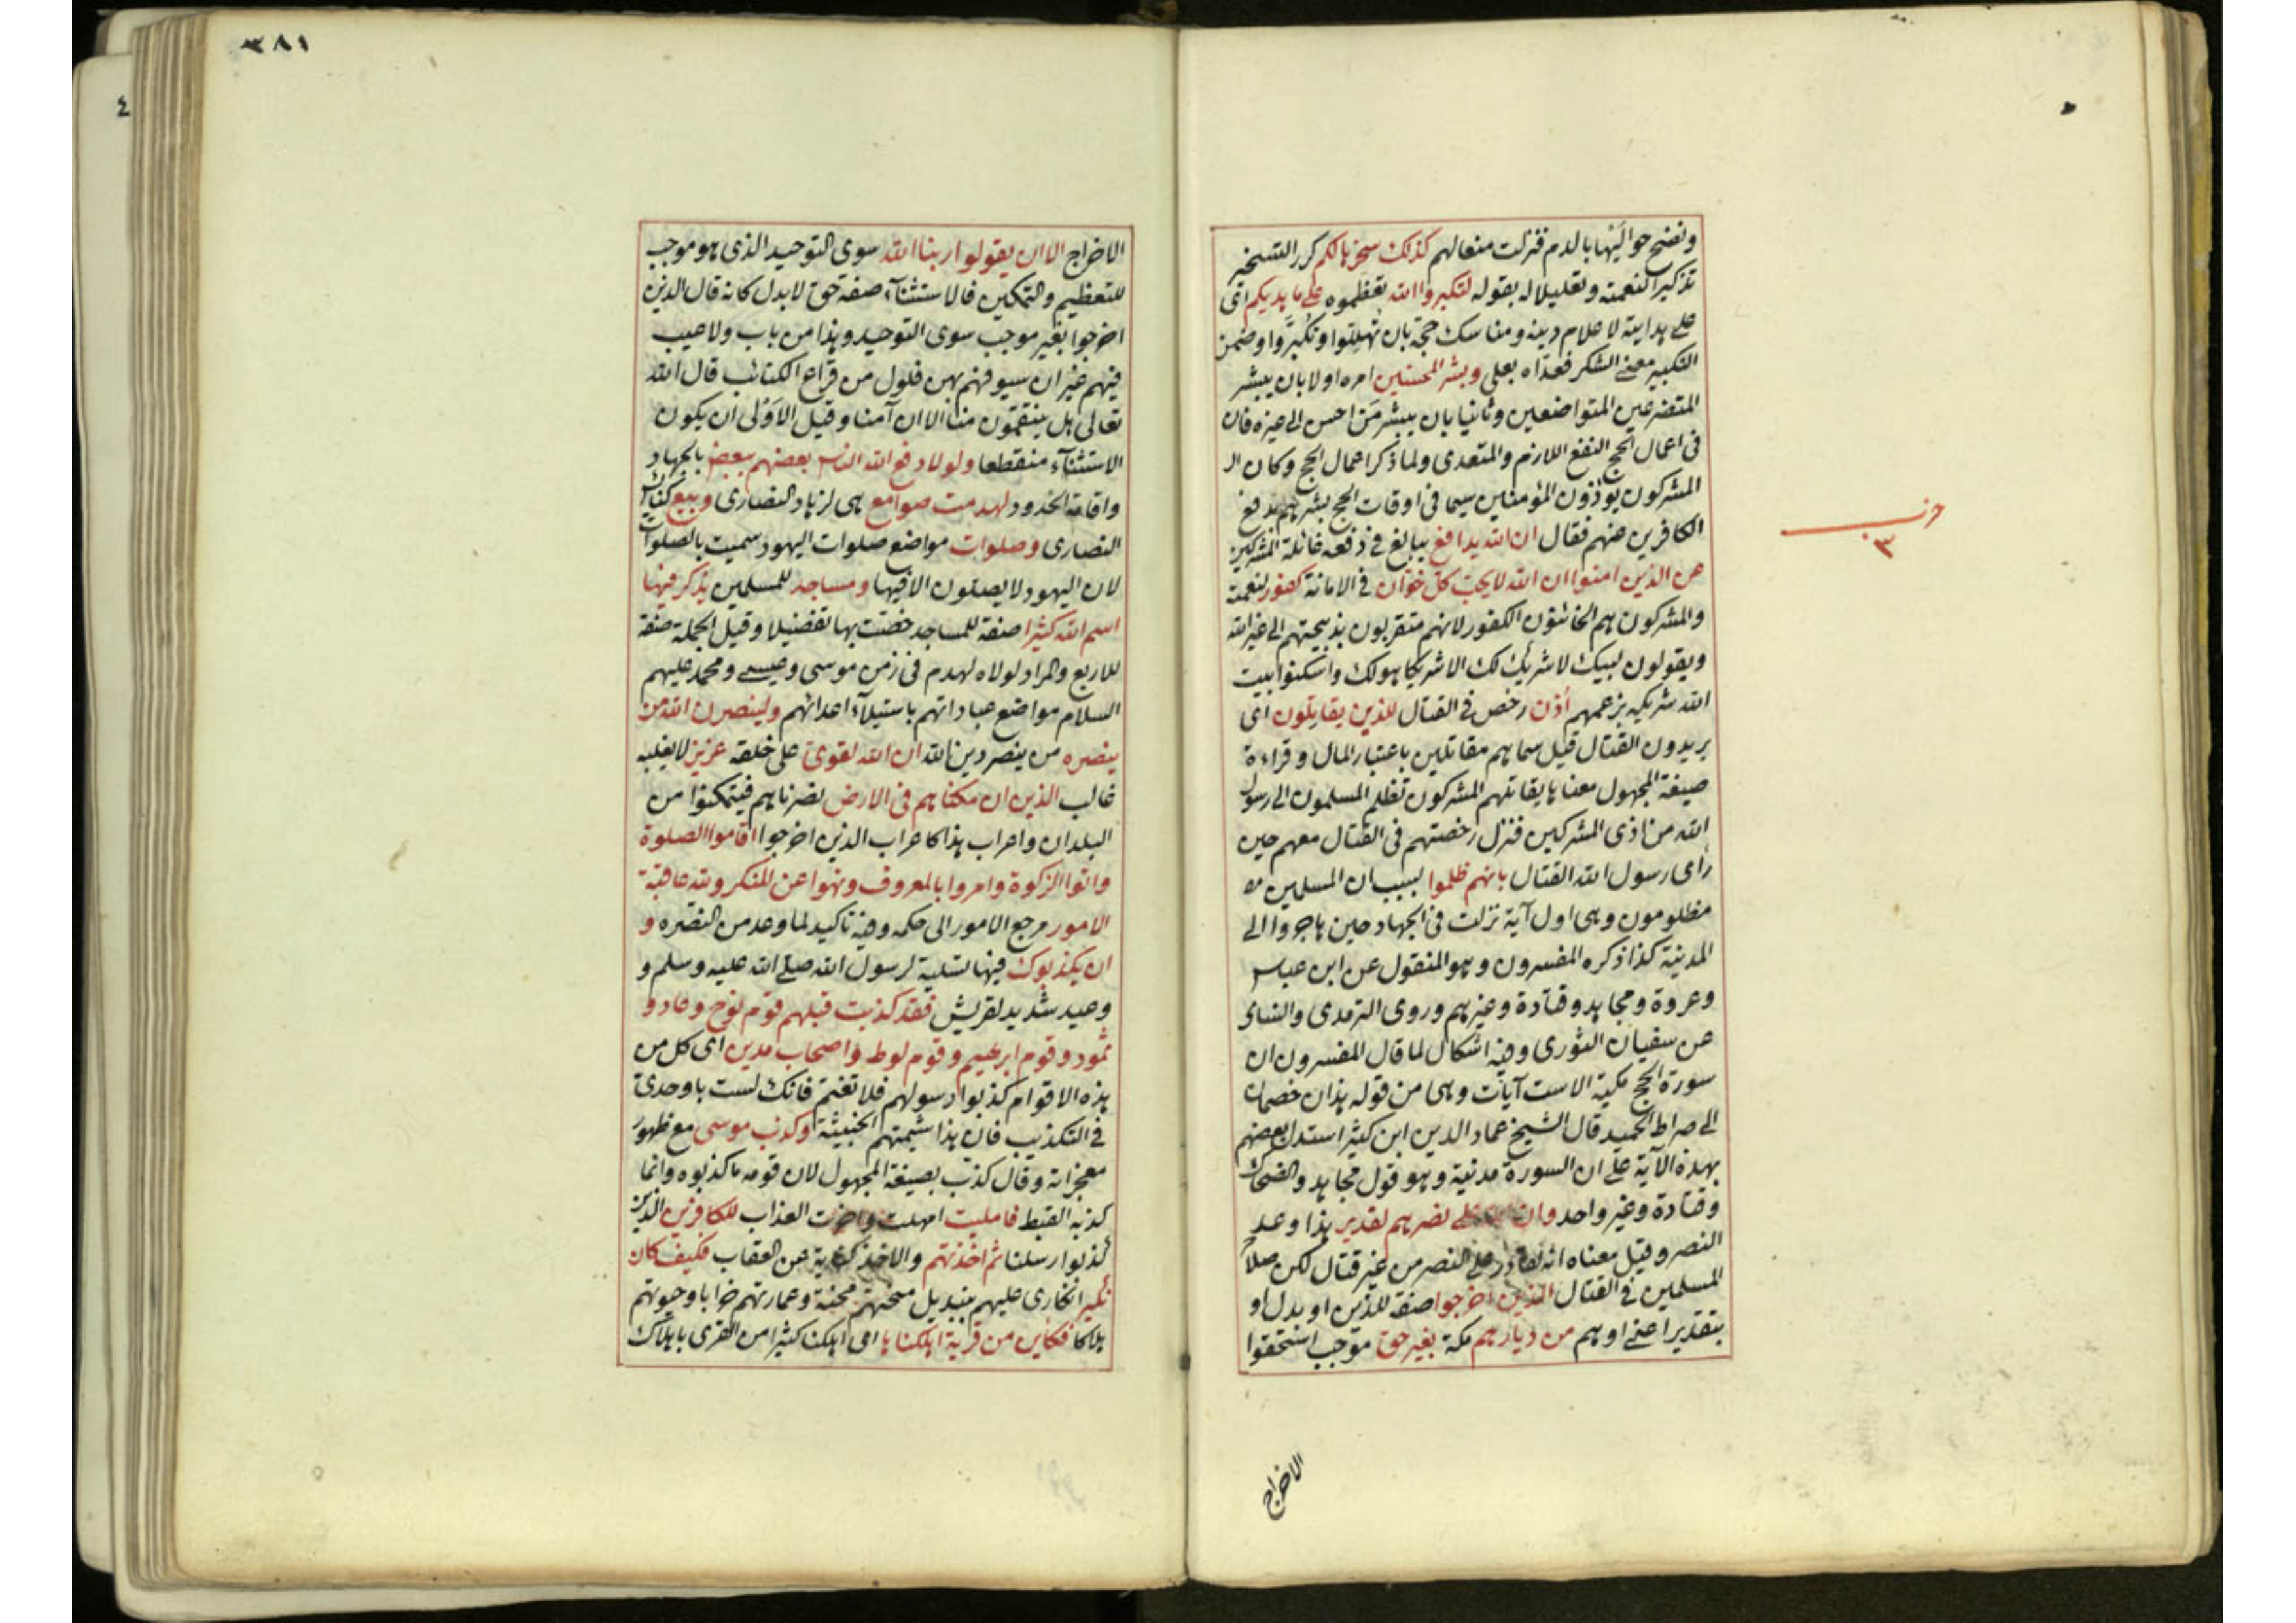 ونضح حوالَيْها بالدم فنزلت منعا لهم كذلك سخرها لكم كرر التسخير
تذكيرا لنعمته وتعليلا له بقوله لتكبروا الله تعظموه على ما هديكم اى
على هدايته لاعلام دينه ومناسك حجّه بان تُهلّلوا وتُكبّروا وضمن
التكبير معنى الشكر فعدّاه بعلى وبشر المحسنين امره اولا بان يبشر
المتضرعين المتواضعين وثانيا بان يبشر مَن احسن الى غيره فان
فى اعمال الحج النفع اللازم والمتعدى ولما ذكر اعمال الحج وكان الـ
المشركون يوذون المؤمنين سيما فى اوقات الحج بشرهم بدفع
الكافرين عنهم فقال ان الله يدافع يبالغ فى دفعه غائلة المشركين
عن الذين امنوا ان الله لا يحب كل خوّان فى الامانة كفور لنعمته
والمشركون هم الخائنون الكفور لانهم متقربون بذبيحتهم الى غير الله
ويقولون لبيك لا شريك لك الا شريكا هو لك واسكنوا بيت
الله شريكه بزعمهم اُذن رخص فى القتال للذين يقاتلون اى
يريدون القتال قيل سماهم مقاتلين باعتبار المال وقراءة
صيغة المجهول معناها يقاتلهم المشركون تظلم المسلمون الى رسول
الله من اذى المشركين فنزل رخصتهم فى القتال معهم حين
رأى رسول الله القتال بانهم ظلموا بسبب ان المسلمين
مظلومون وهى اول آية نزلت فى الجهاد حين هاجروا الى
المدينة كذا ذكره المفسرون وهو المنقول عن ابن عباس
وعروة ومجاهد وقتادة وغيرهم وروى الترمذى والنساى
عن سفيان الثورى وفيه اشكال لما قال المفسرون ان
سورة الحج مكية الا ست آيات وهى من قوله هذان خصمان
الى صراط الحميد قال الشيخ عماد الدين ابن كثير استدل بعضهم
بهذه الآية على ان السورة مدنية وهو قول مجاهد والضحاك
وقتادة وغير واحد وان الله على نصرهم لقدير هذا وعد
النصر وقيل معناه انه لقادر على النصر من غير قتال لكن صلاح
المسلمين فى القتال الذين اخرجوا صفة للذين او بدل او
بتقدير اعنى او هم من ديارهم مكة بغير حق موجب استحقوا
الاخراج
حزب
٣
٣٨١
الاخراج الا ان يقولوا ربنا الله سوى التوحيد الذى هو موجب
للتعظيم والتمكين فالاستثناء صفة حق لا بدل كانه قال الذين
اخرجوا بغير موجب سوى التوحيد وهذا من باب ولا عيب
فيهم غير ان سيوفهم بهن فلول من قراع الكتائب قال الله
تعالى هل ينتقمون منا الا ان آمنا وقيل الاَوْلى ان يكون
الاستثناء منقطعا ولولا دفع الله الناس بعضهم ببعض بالجهاد
واقامة الحدود لهدمت صوامع هى لزهاد النصارى وبيع كنائس
النصارى وصلوات مواضع صلوات اليهود سميت بالصلوات
لان اليهود لا يصلون الا فيها ومساجد للمسلمين يذكر فيها
اسم الله كثيرا صفة للمساجد خصّت بها تفضيلا وقيل الجملة صفة
للاربع والمراد لولاه لهدم فى زمن موسى وعيسى ومحمد عليهم
السلام مواضع عباداتهم باستيلاء اعدائهم ولينصرن الله من
ينصره من ينصر دين الله ان الله لقوى على خلقه عزيز لا يغلبه
غالب الذين ان مكناهم فى الارض نصرناهم فيتمكنوا من
البلدان واعراب هذا كاعراب الذين اخرجوا اقاموا الصلوة
واتوا الزكوة وامروا بالمعروف ونهوا عن المنكر ولله عاقبة
الامور مرجع الامور الى حكمه وفيه تاكيد لما وعد من النصره و
ان يكذبوك فيها تسلية لرسول الله صلى الله عليه وسلم و
وعيد شديد لقريش فقد كذبت قبلهم قوم نوح وعاد و
ثمود وقوم ابرهيم وقوم لوط واصحاب مدين اى كل من
هذه الاقوام كذبوا رسولهم فلا تغتمّ فانك لست باوحدىّ
فى التكذيب فان هذا شيمتهم الخبيثة وكذب موسى مع ظهور
معجزاته وقال كذب بصيغة المجهول لان قومه ما كذبوه وانما
كذبه القبط فامليت امهلت واخرت العذاب للكافرين الذين
كذبوا رسلنا ثم اخذتهم والاخذ كناية عن العقاب فكيف كان
نكير انكارى عليهم بتبديل منحتهم محنة وعمارتهم خرابا وحيوتهم
هلاكا فكاين من قرية اهلكناها اى اهلكنا كثيرا من القرى باهلاك
٤